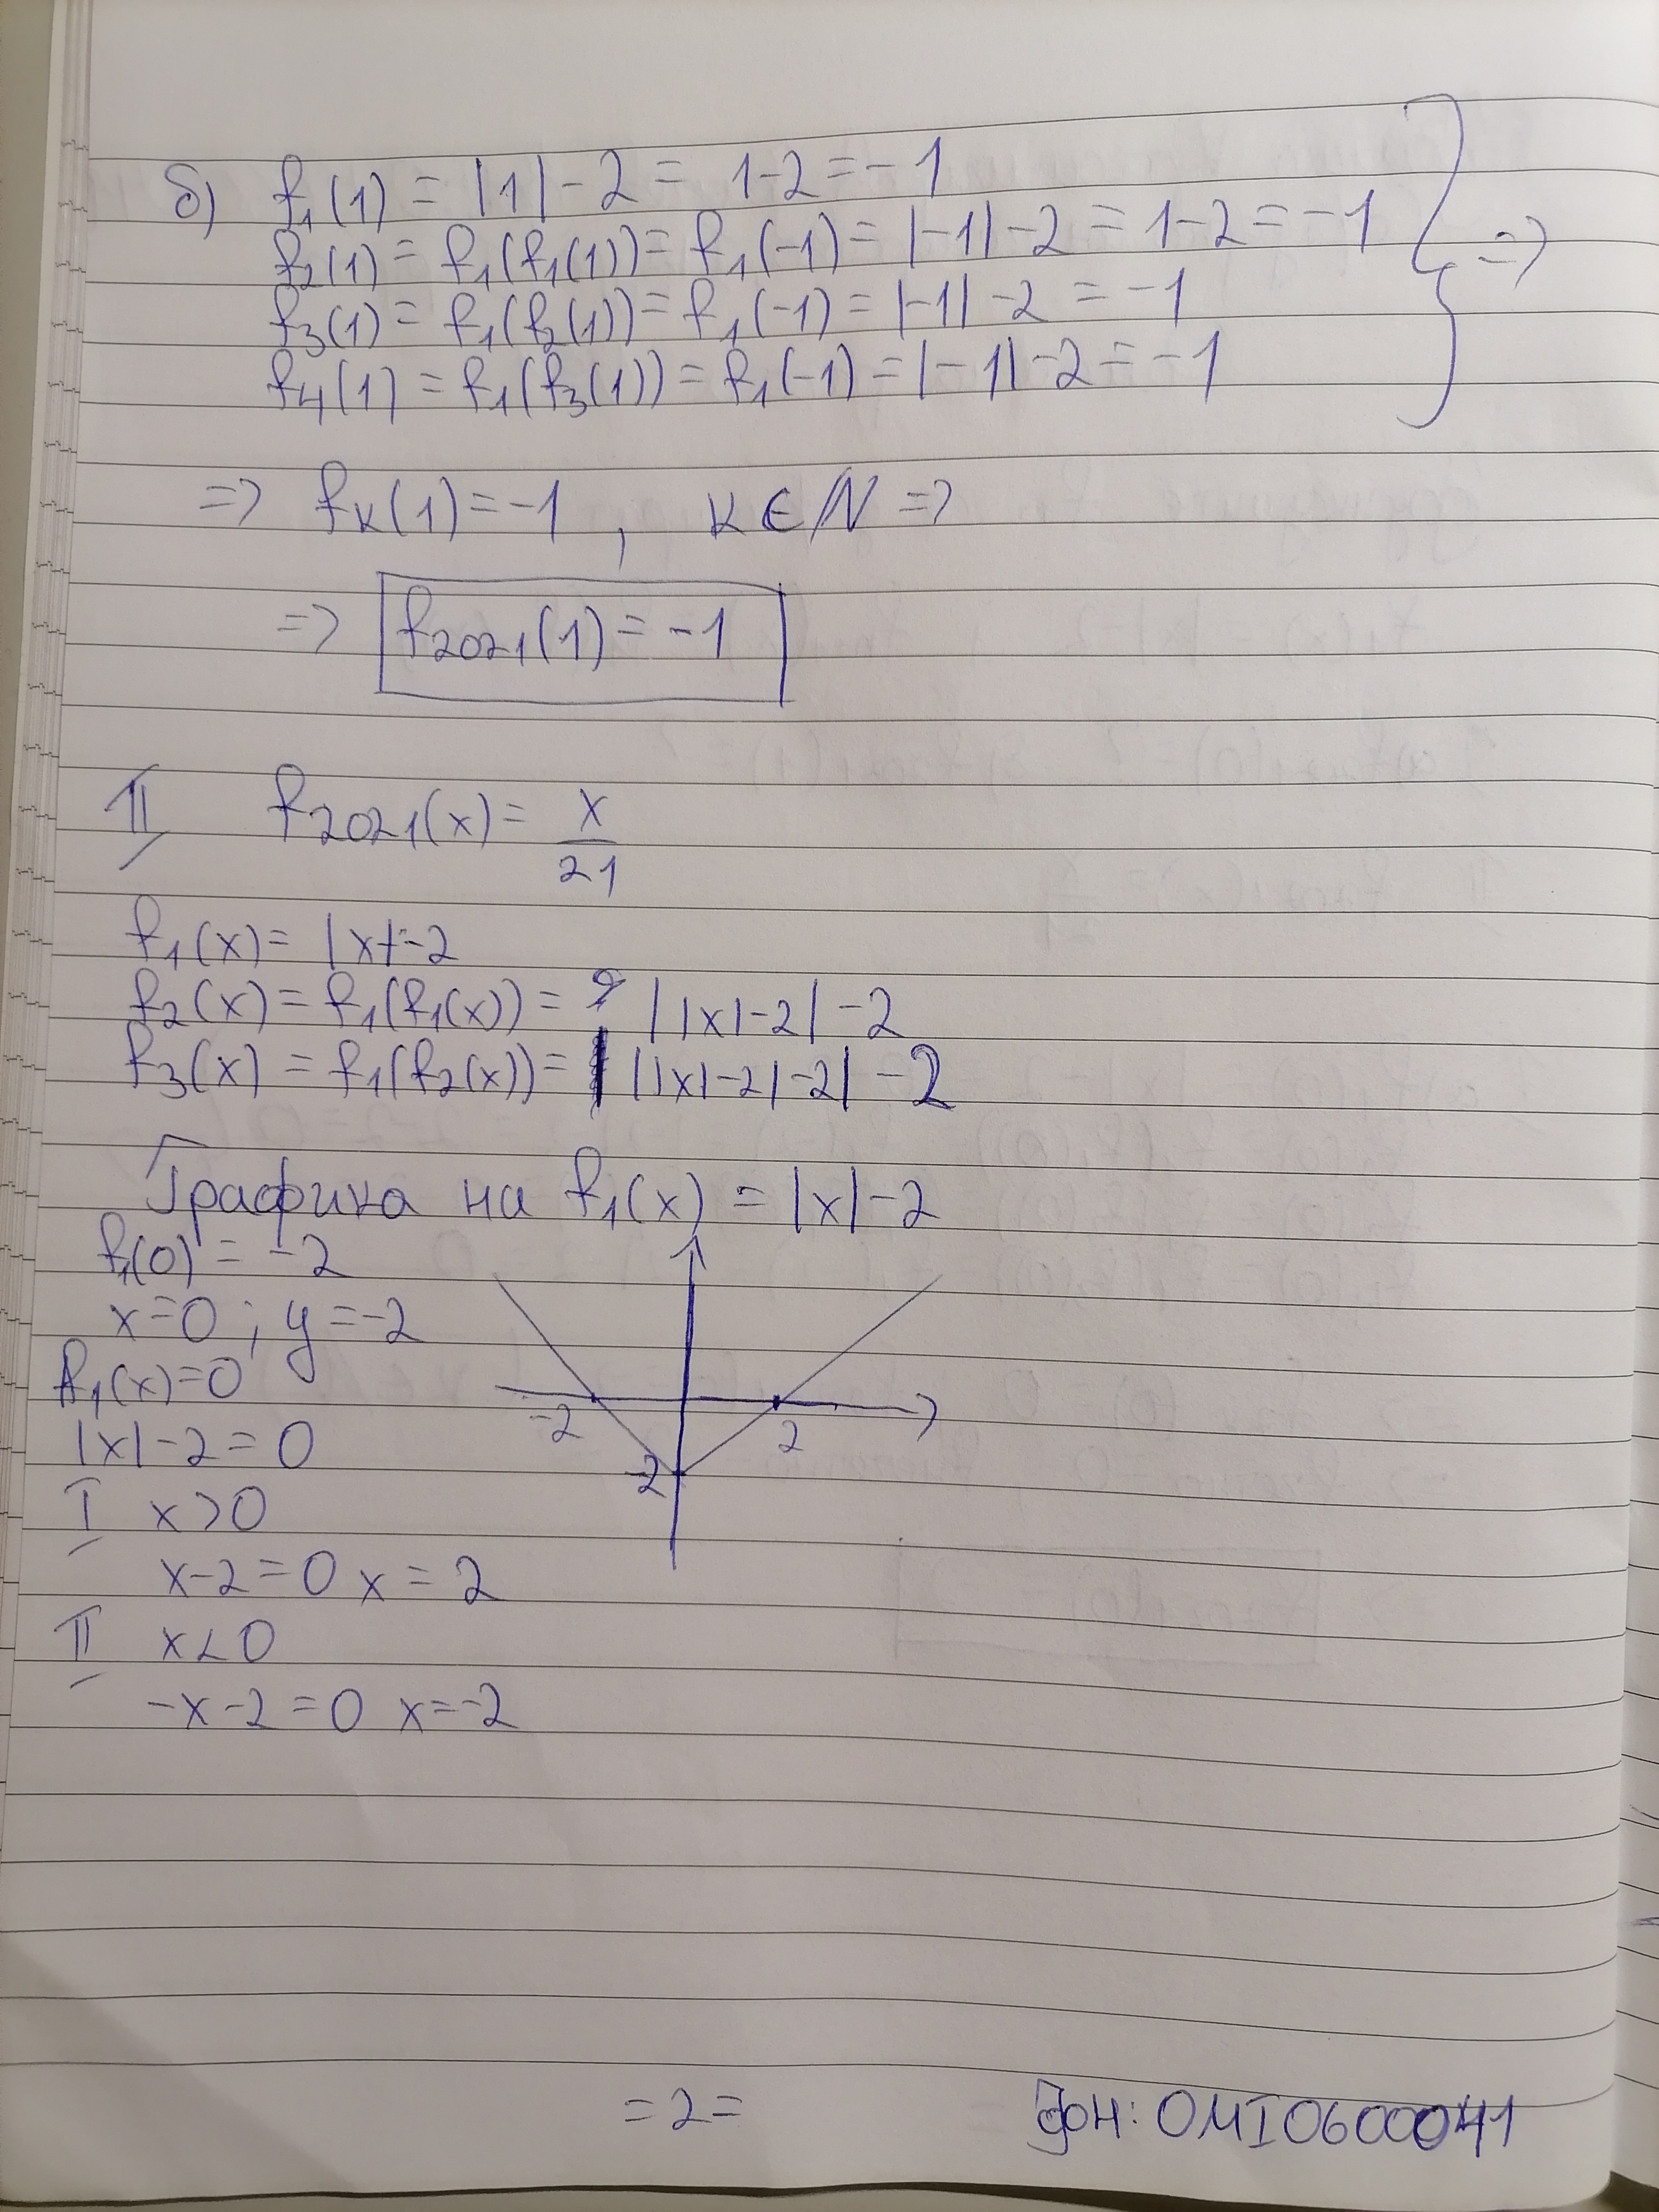 б) f₁(1) = |1| - 2 = 1-2 = -1
f₂(1) = f₁(f₁(1)) = f₁(-1) = |-1| -2 = 1-2 = -1
f₃(1) = f₁(f₂(1)) = f₁(-1) = |-1| -2 = -1
f₄(1) = f₁(f₃(1)) = f₁(-1) = |-1| -2 = -1
} =>
=> fₖ(1) = -1 , K ∈ N =>
=> f₂₀₂₁(1) = -1
II f₂₀₂₁(x) = x/21
f₁(x) = |x|-2
f₂(x) = f₁(f₁(x)) = ||x|-2| -2
f₃(x) = f₁(f₂(x)) = |||x|-2|-2| -2
Графика на f₁(x) = |x|-2
f₁(0) = -2
x=0 ; y=-2
f₁(x)=0
-2
2
|x|-2=0
-2
I x>0
x-2=0 x=2
II x<0
-x-2=0 x=-2
=2=